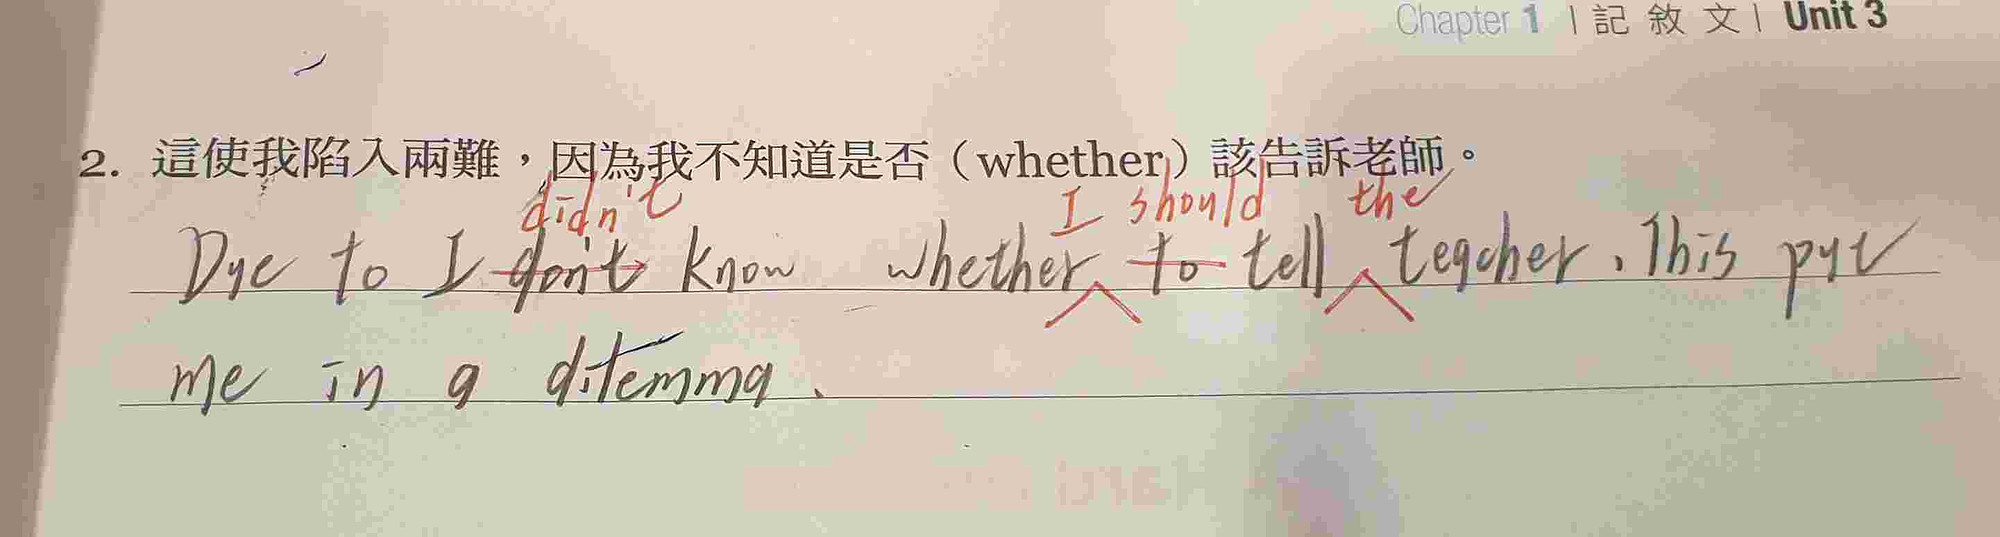 Chapter 1 | 記敘文 | Unit 3
2. 這使我陷入兩難，因為我不知道是否（whether）該告訴老師。
didn't I should the
Due to I don't know whether to tell teacher, This put
me in a dilemma.